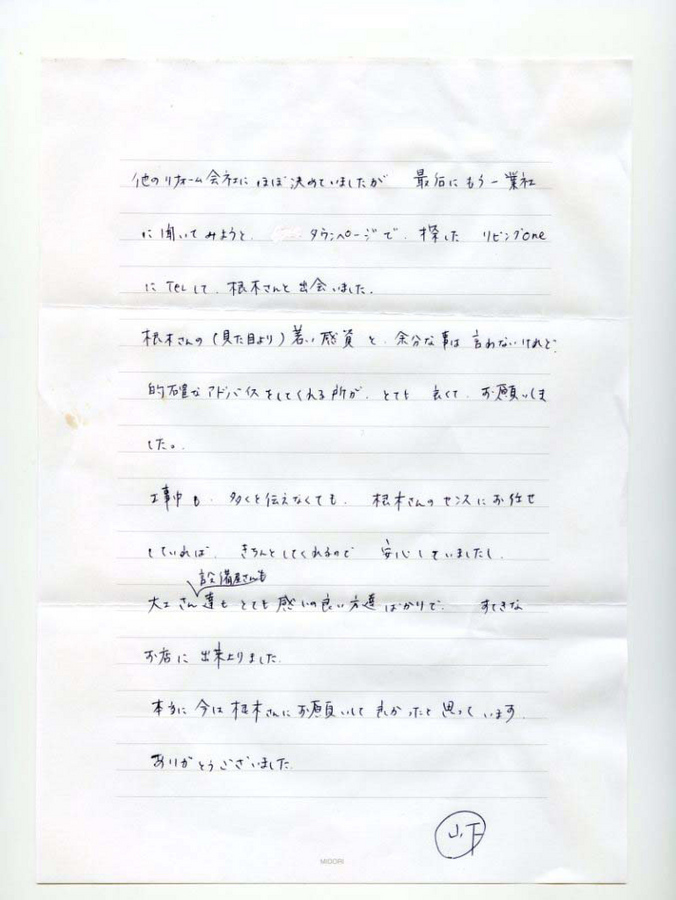 他のリフォーム会社にほぼ決めていましたが 最后にもう一業社
に聞いてみようと、 タウンページで、探した リビングone
にTELして、根木さんと出会いました。
根木さんの(見た目より)若い感覚と、余分な事は言わないけれど、
的確なアドバイスをしてくれる所が、とても 良くて、お願いしま
した。
工事中も、多くを伝えなくても、 根木さんのセンスにお任せ
していれば、きちんとしてくれるので 安心していましたし、
設備屋さんも
大工さん達もとても感じの良い方達ばかりで、 すてきな
お店に出来上りました。
本当に今は根木さんにお願いして良かったと思っています。
ありがとうございました。
山下
MIDORI